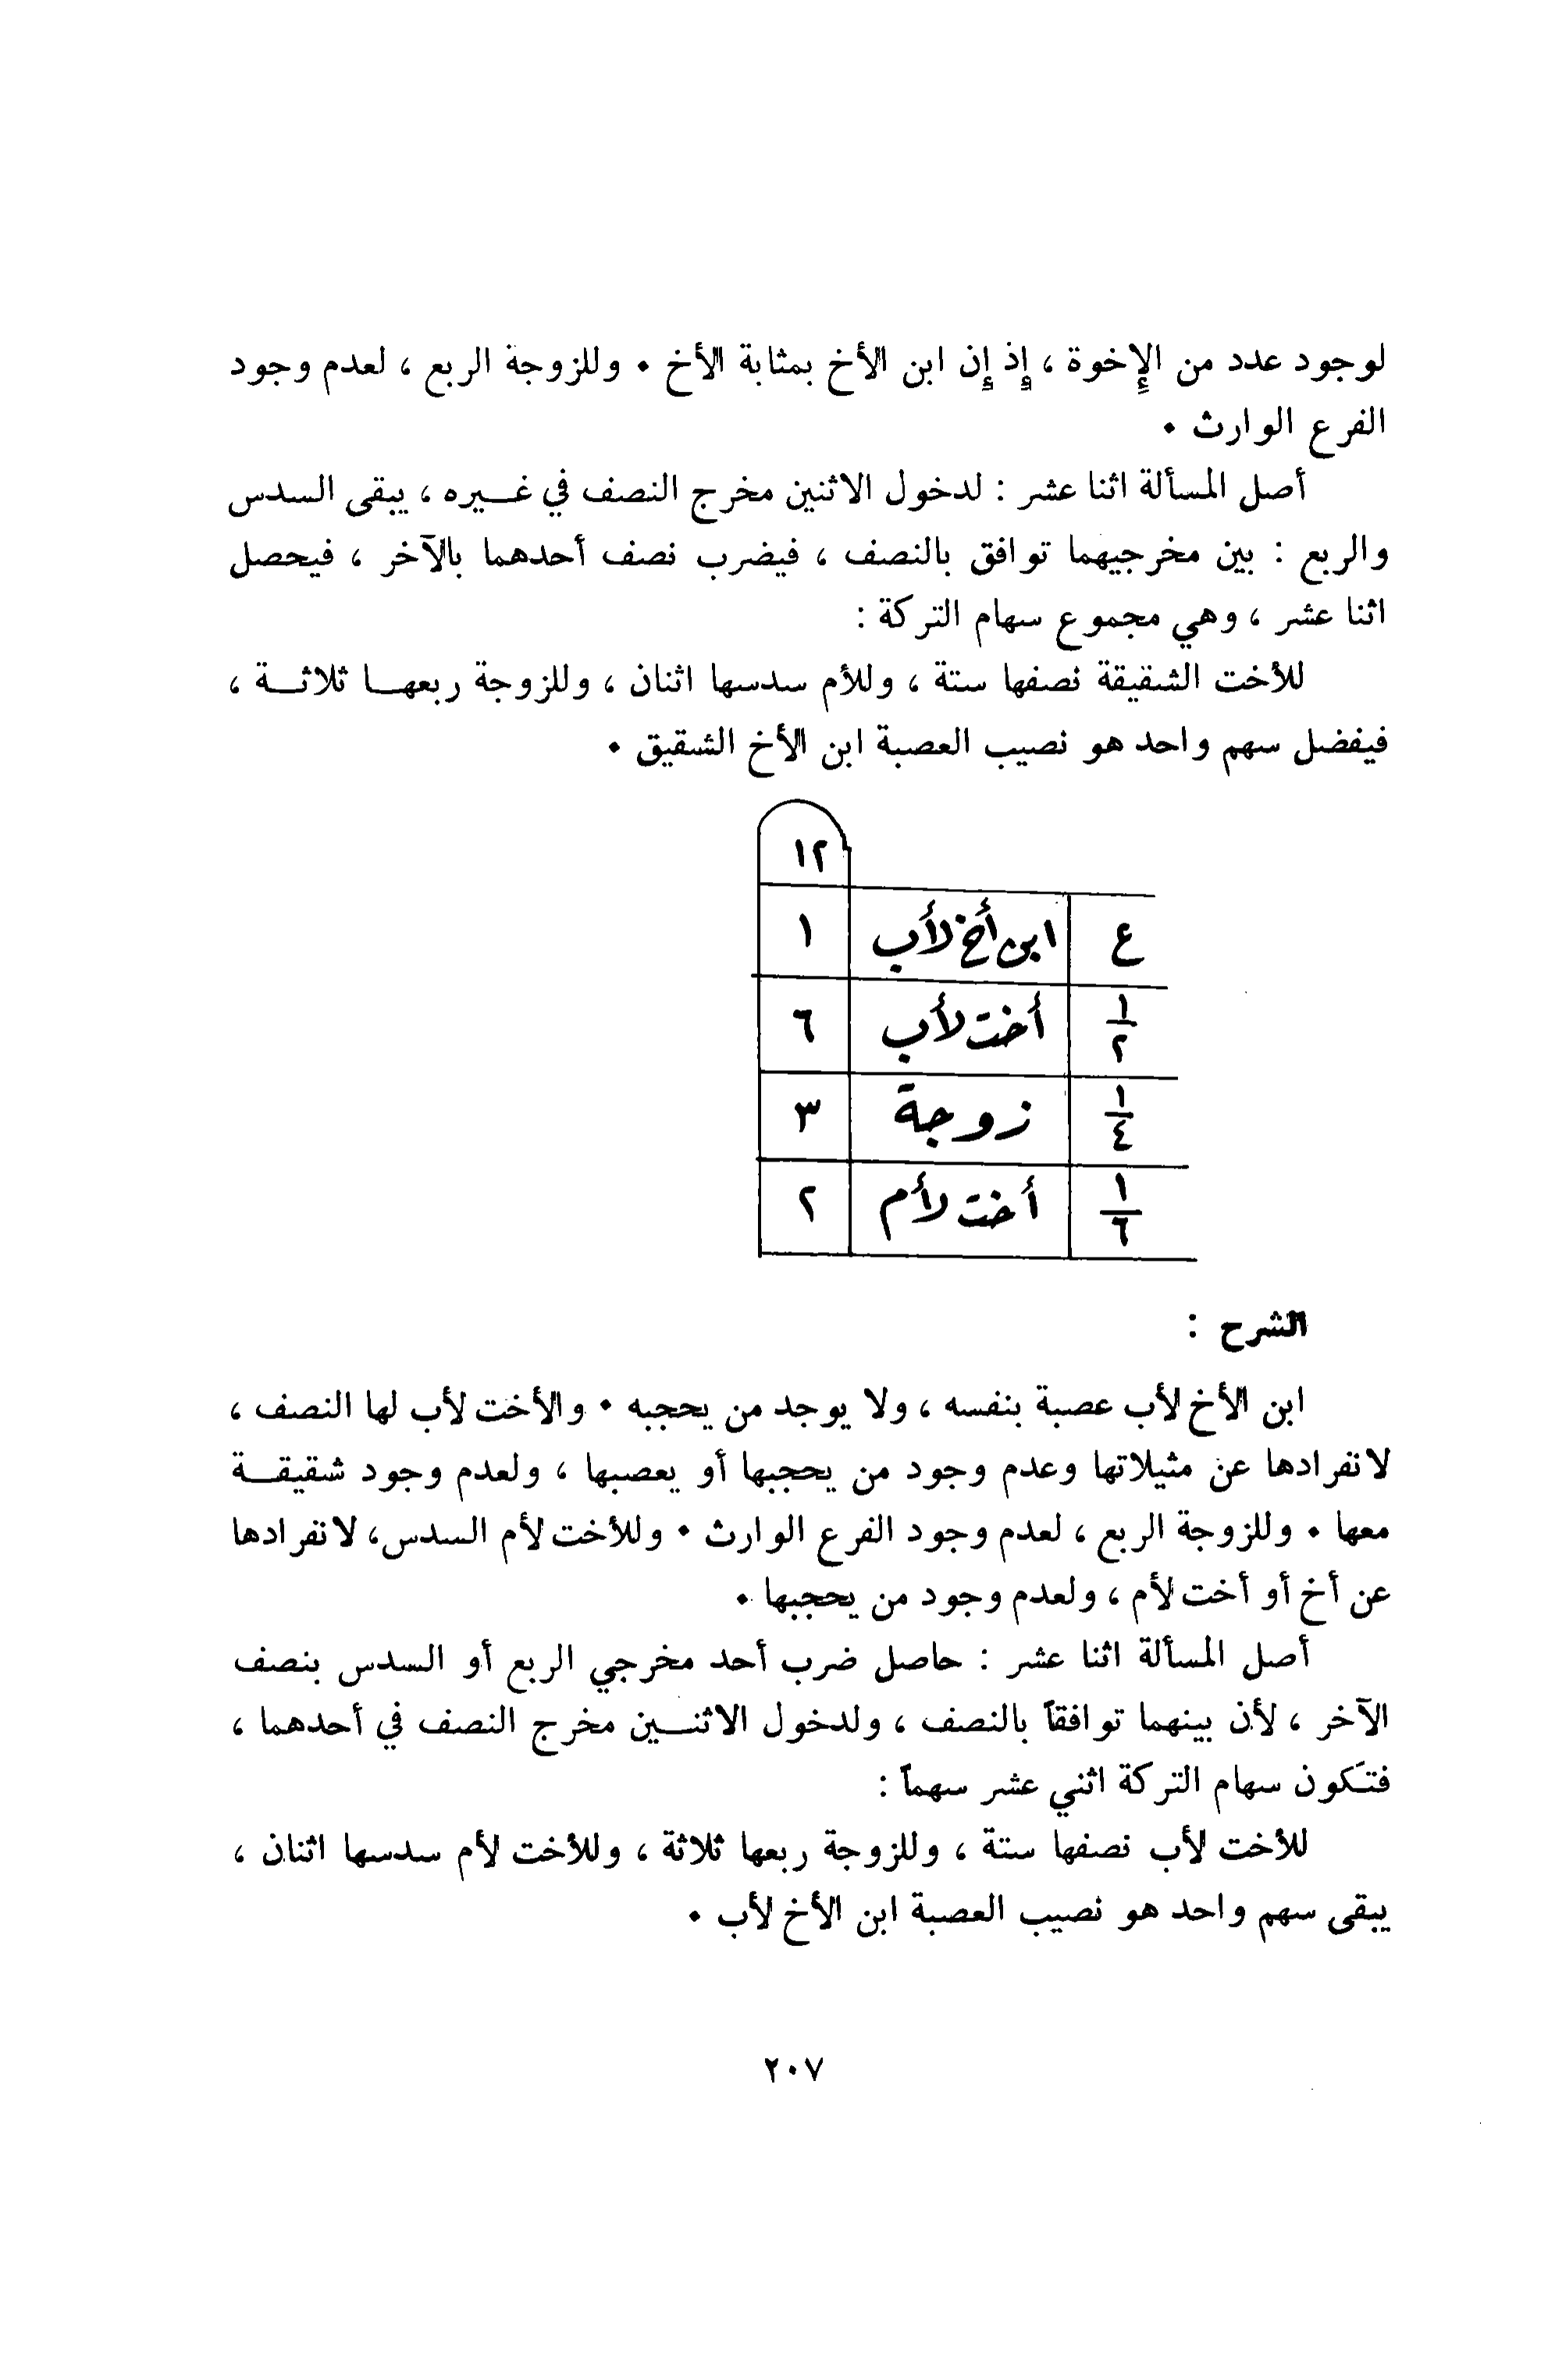 لوجود عدد من الإِخوة ، إِذ إِن ابن الأخ بمثابة الأخ • وللزوجة الربع ، لعدم وجود
الفرع الوارث •
أصل المسألة اثنا عشر : لدخول الاثنين مخرج النصف في غـــيره ، يبقى السدس
والربع : بين مخرجيهما توافق بالنصف ، فيضرب نصف أحدهما بالآخر ، فيحصل
اثنا عشر ، وهي مجموع سهام التركة :
للأخت الشقيقة نصفها ستة ، وللأم سدسها اثنان ، وللزوجة ربعهــا ثلاثــة ،
فيفضل سهم واحد هو نصيب العصبة ابن الأخ الشقيق •
١٢
ع ابن أخ لأب ١
١/٢ أخت لأب ٦
١/٤ زوجة ٣
١/٦ أخت لأم ٢
الشرح :
ابن الأخ لأب عصبة بنفسه ، ولا يوجد من يحجبه • والأخت لأب لها النصف ،
لانفرادها عن مثيلاتها وعدم وجود من يحجبها أو يعصبها ، ولعدم وجود شقيقــة
معها • وللزوجة الربع ، لعدم وجود الفرع الوارث • وللأخت لأم السدس، لانفرادها
عن أخ أو أخت لأم ، ولعدم وجود من يحجبها •
أصل المسألة اثنا عشر : حاصل ضرب أحد مخرجي الربع أو السدس بنصف
الآخر ، لأن بينهما توافقاً بالنصف ، ولدخول الاثنـــين مخرج النصف في أحدهما ،
فتكون سهام التركة اثني عشر سهماً :
للأخت لأب نصفها ستة ، وللزوجة ربعها ثلاثة ، وللأخت لأم سدسها اثنان ،
يبقى سهم واحد هو نصيب العصبة ابن الأخ لأب •
٢٠٧